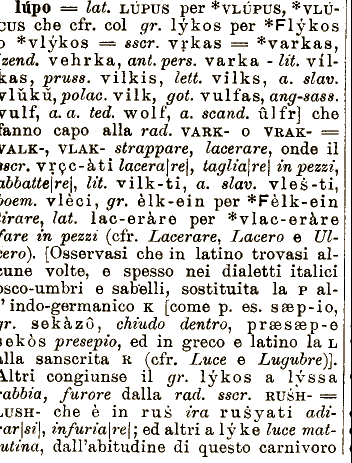 lúpo = lat. LÚPUS per *VLÚPUS, *VLÚ-
CUS che cfr. col gr. lỳkos per *Flýkos
o *vlýkos = sscr. vṛkas = *varkas,
zend. vehrka, ant. pers. varka - lit. víl-
kas, pruss. vilkis, lett. vilks, a. slav.
vlŭkŭ, polac. vilk, got. vulfas, ang-sass.
vulf, a. a. ted. wolf, a. scand. ûlfr] che
fanno capo alla rad. VARK- o VRAK- =
VALK-, VLAK- strappare, lacerare, onde il
sscr. vṛçc-àti lacera[re], taglia[re] in pezzi,
abbatte[re], lit. vilk-ti, a. slav. vlešti,
boem. vlèci, gr. èlk-ein per *Fèlk-ein
tirare, lat. lac-eràre per *vlac-eràre
fare in pezzi (cfr. Lacerare, Lacero e Ul-
cero). [Osservasi che in latino trovasi al-
cune volte, e spesso nei dialetti italici
osco-umbri e sabelli, sostituita la P al-
l'indo-germanico K [come p. es. sæp-io,
gr. sekàzô, chiudo dentro, præsæp-e
sekòs presepio, ed in greco e latino la L
alla sanscrita R (cfr. Luce e Lugubre)].
Altri congiunse il gr. lýkos a lýssa
rabbia, furore dalla rad. sscr. RUSH- =
LUSH- che è in ruš ira rušyati adi-
rar[si], infuria[re]; ed altri a lýke luce mat-
tutina, dall'abitudine di questo carnivoro